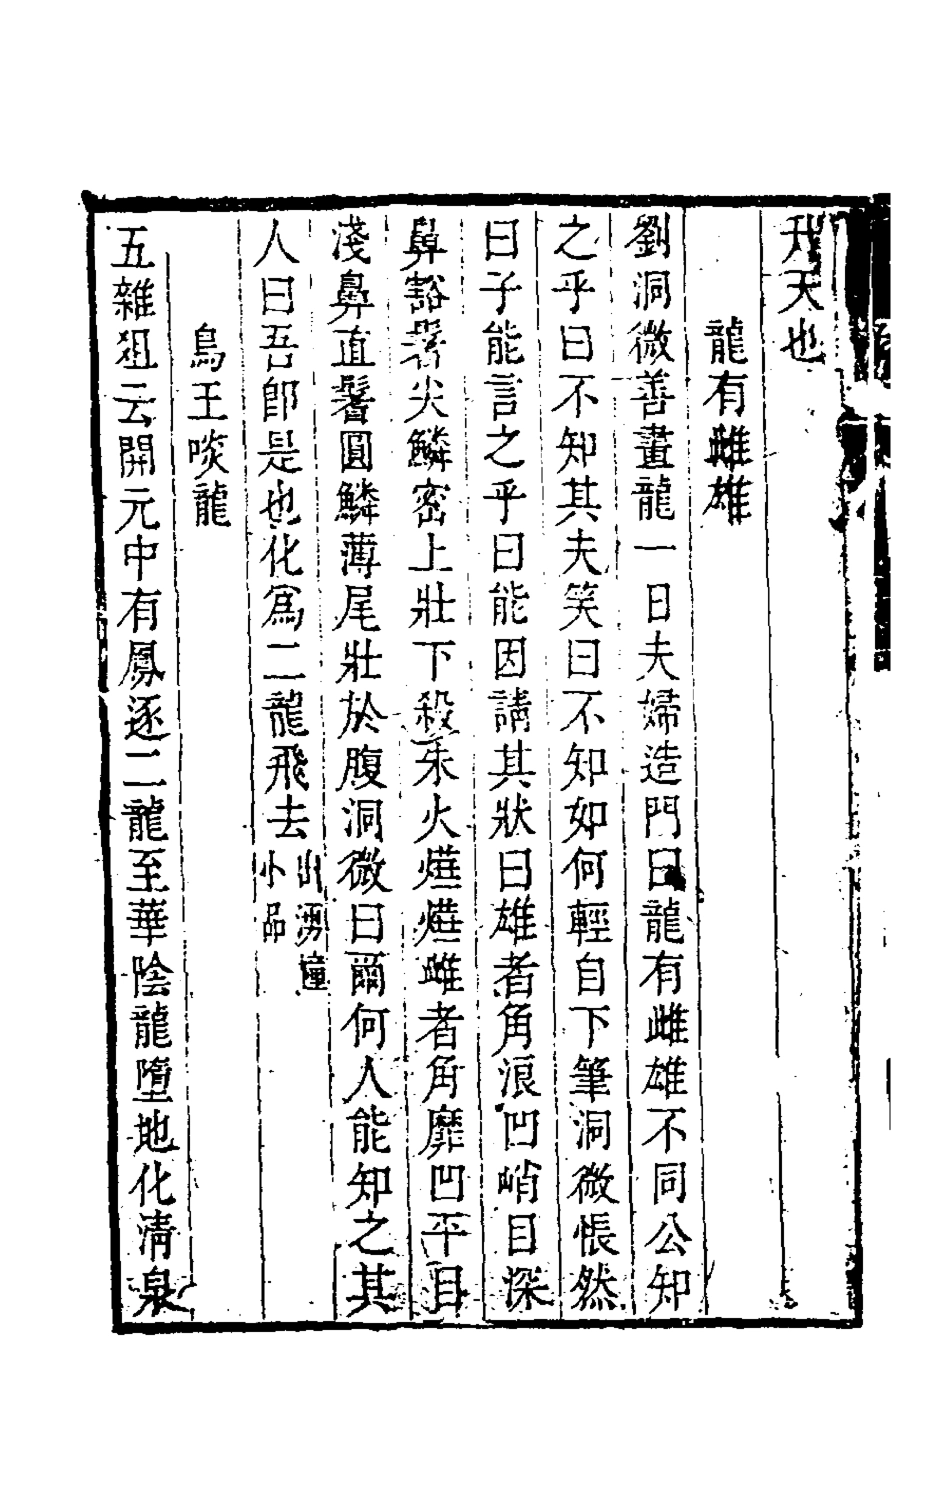 升天也
龍有雌雄
劉洞微善畫龍一日夫婦造門曰龍有雌雄不同公知
之乎曰不知其夫笑曰不知如何輕自下筆洞微悵然
曰子能言之乎曰能因請其狀曰雄者角浪凹峭目深
鼻豁鬐尖鱗密上壯下殺朱火燁燁雌者角靡凹平目
淺鼻直鬐圓鱗薄尾壯於腹洞微曰爾何人能知之其
人曰吾卽是也化爲二龍飛去出湧幢小品
鳥王啖龍
五雜俎云開元中有鳳逐二龍至華陰龍墮地化淸泉